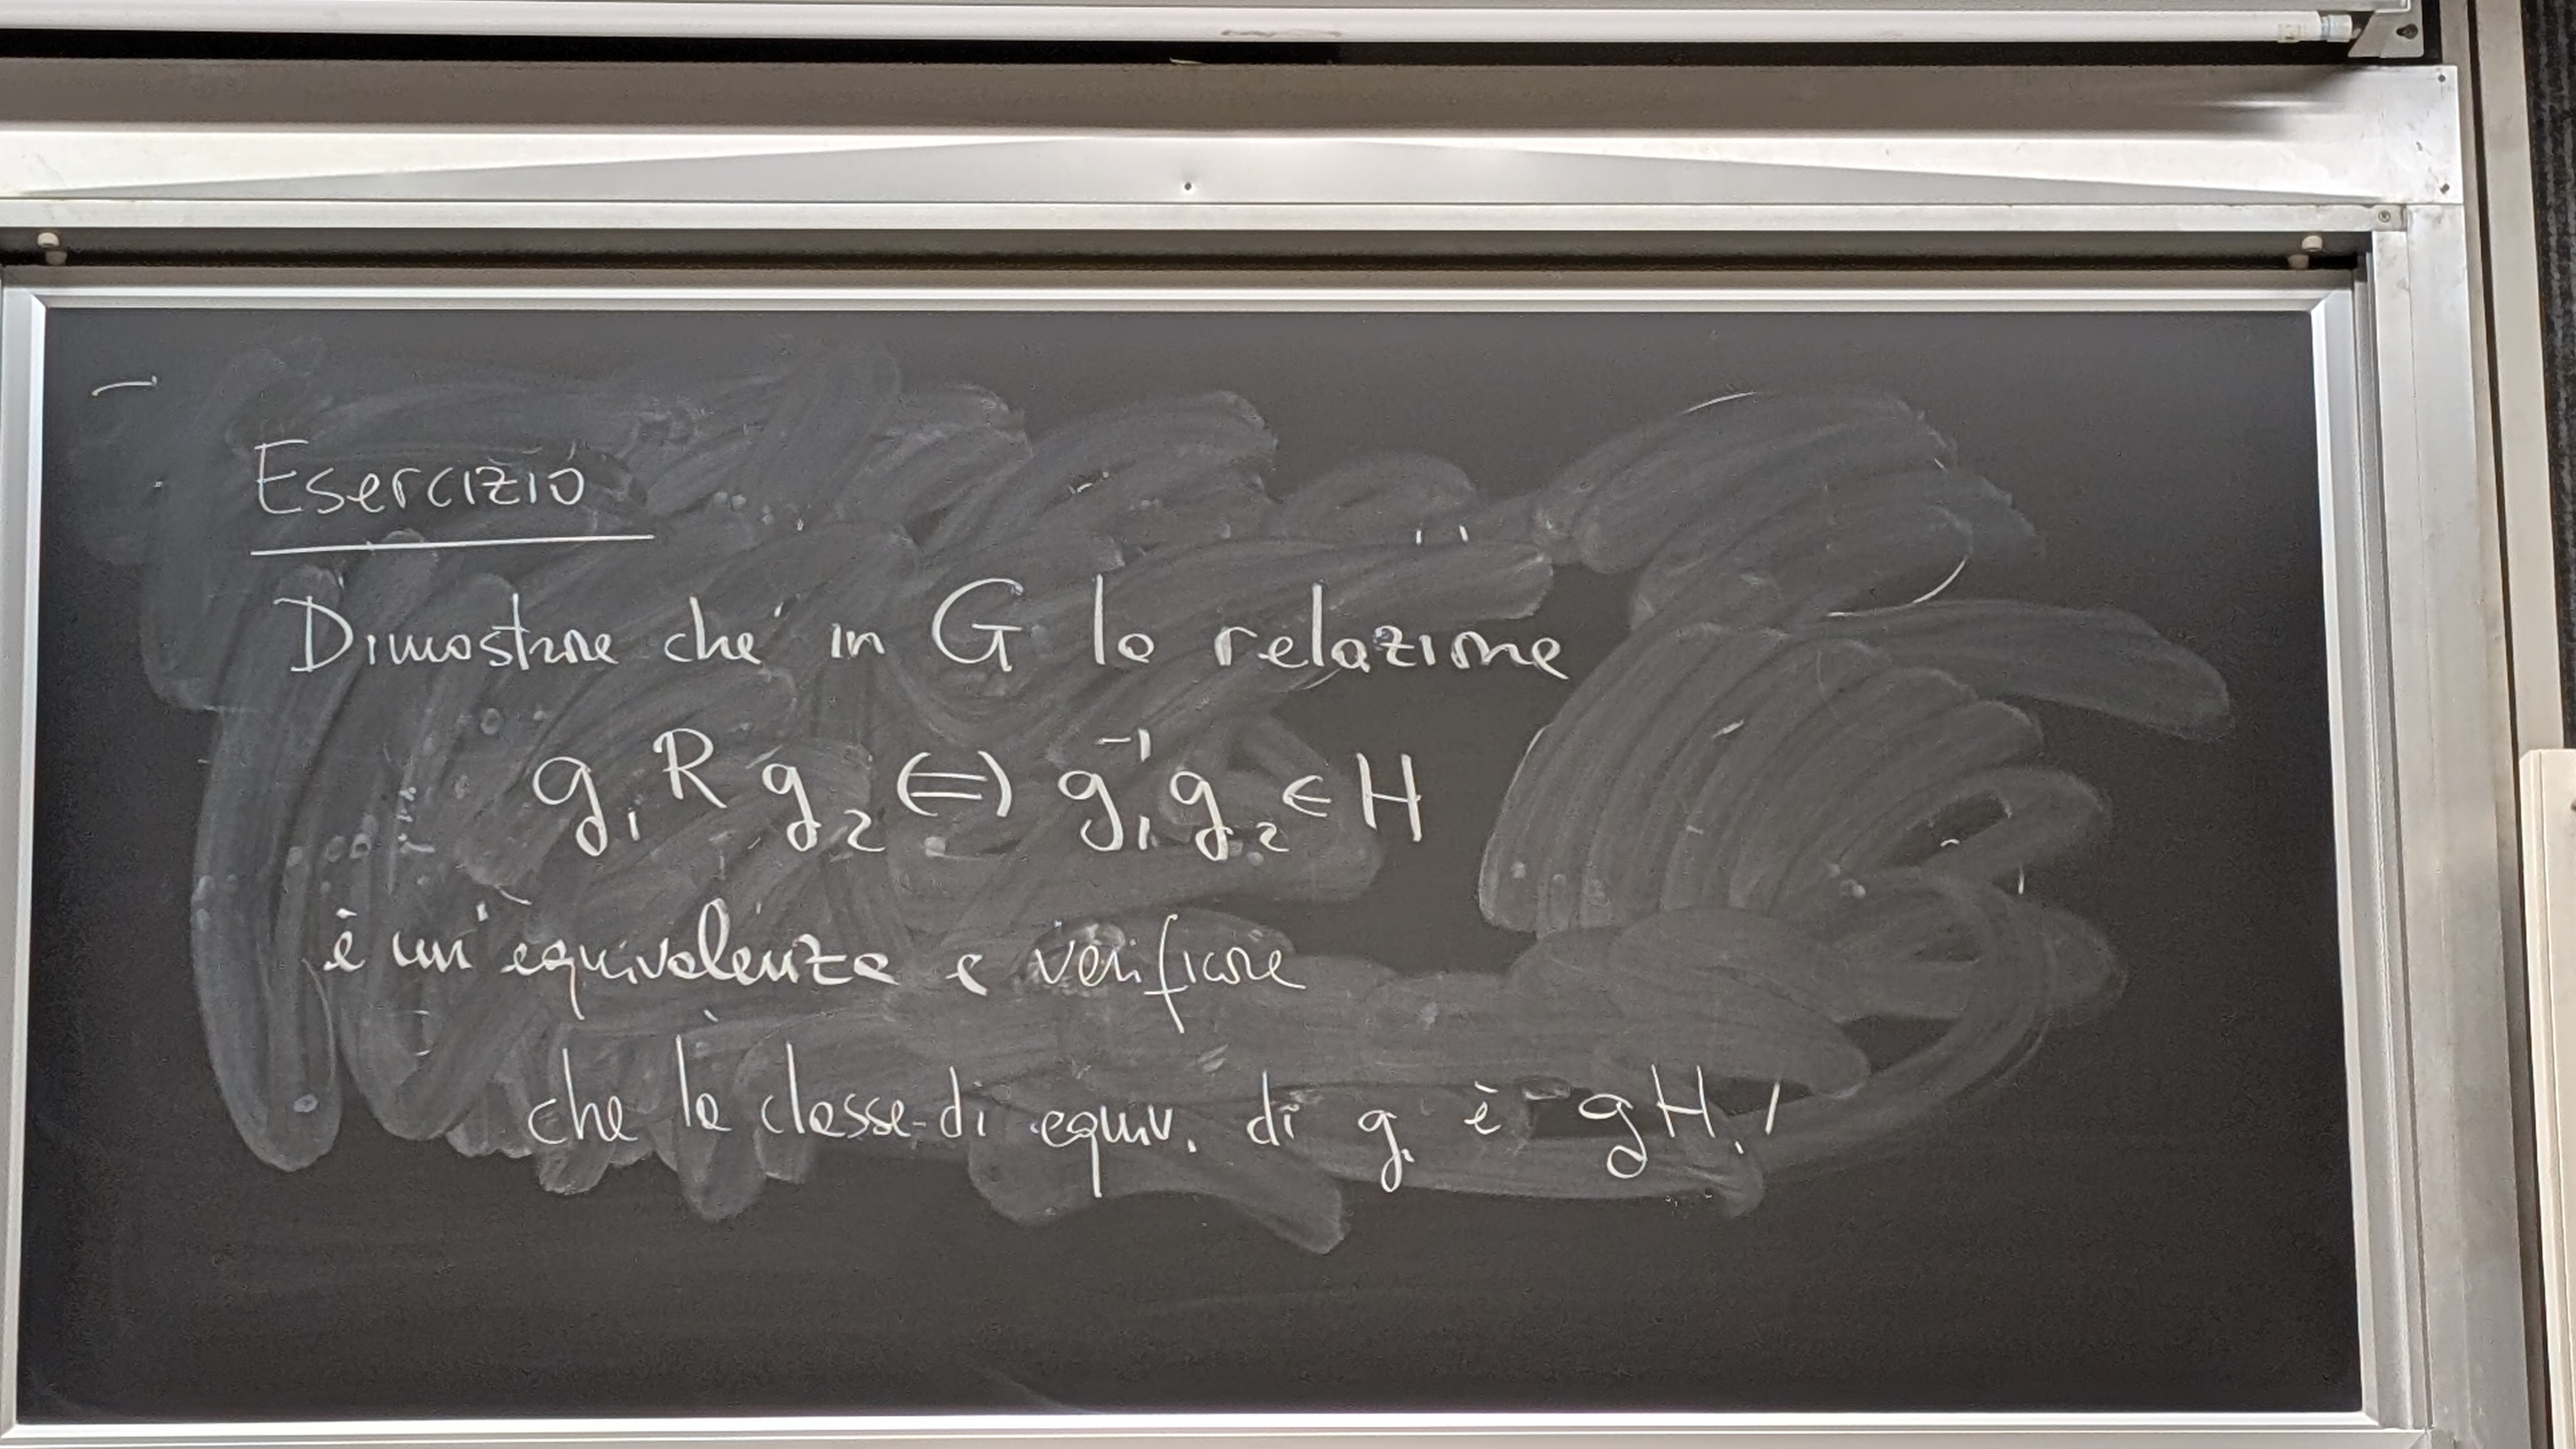 Esercizio
Dimostrare che in G la relazione
g₁ R g₂ ⇔ g₁⁻¹g₂ ∈ H
è un'equivalenza e verificare
che la classe di equiv. di g è gH.